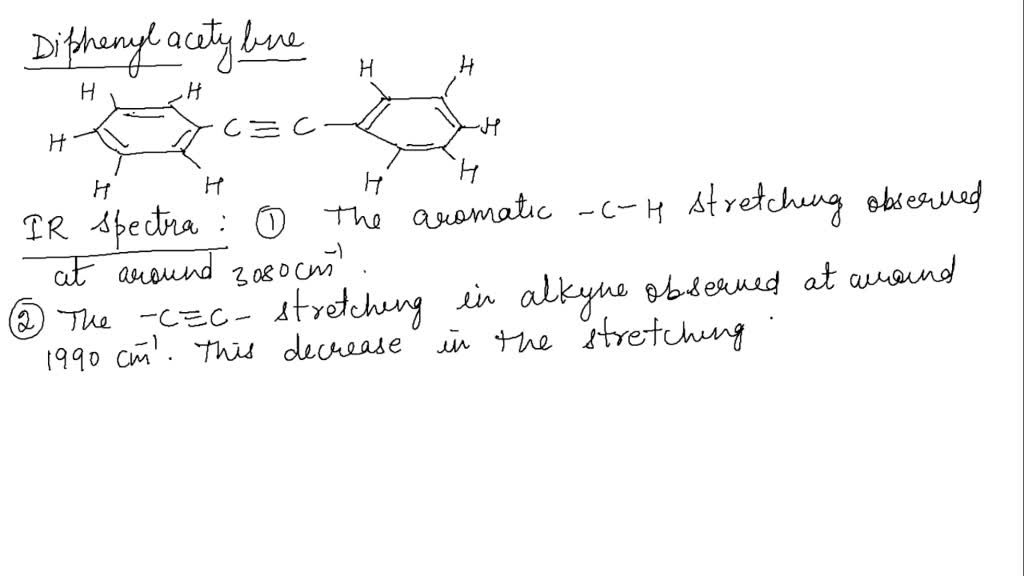 Diphenylacetylene
H H H H
H C ≡ C H
H H H H
IR spectra : ① The aromatic -C-H stretching observed
at around 3080 cm⁻¹.
② The -C≡C- stretching in alkyne observed at around
1990 cm⁻¹. This decrease in the stretching